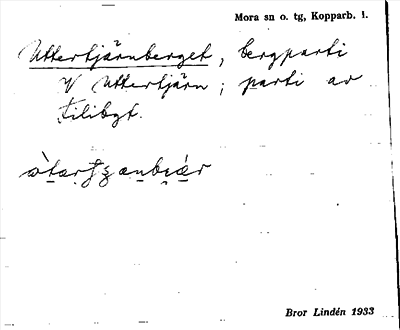 Mora sn o. tg, Kopparb. l.
Uttertjärnberget, bergparti
V Uttertjärn; parti av
Tilibgt.
Bror Lindén 1933